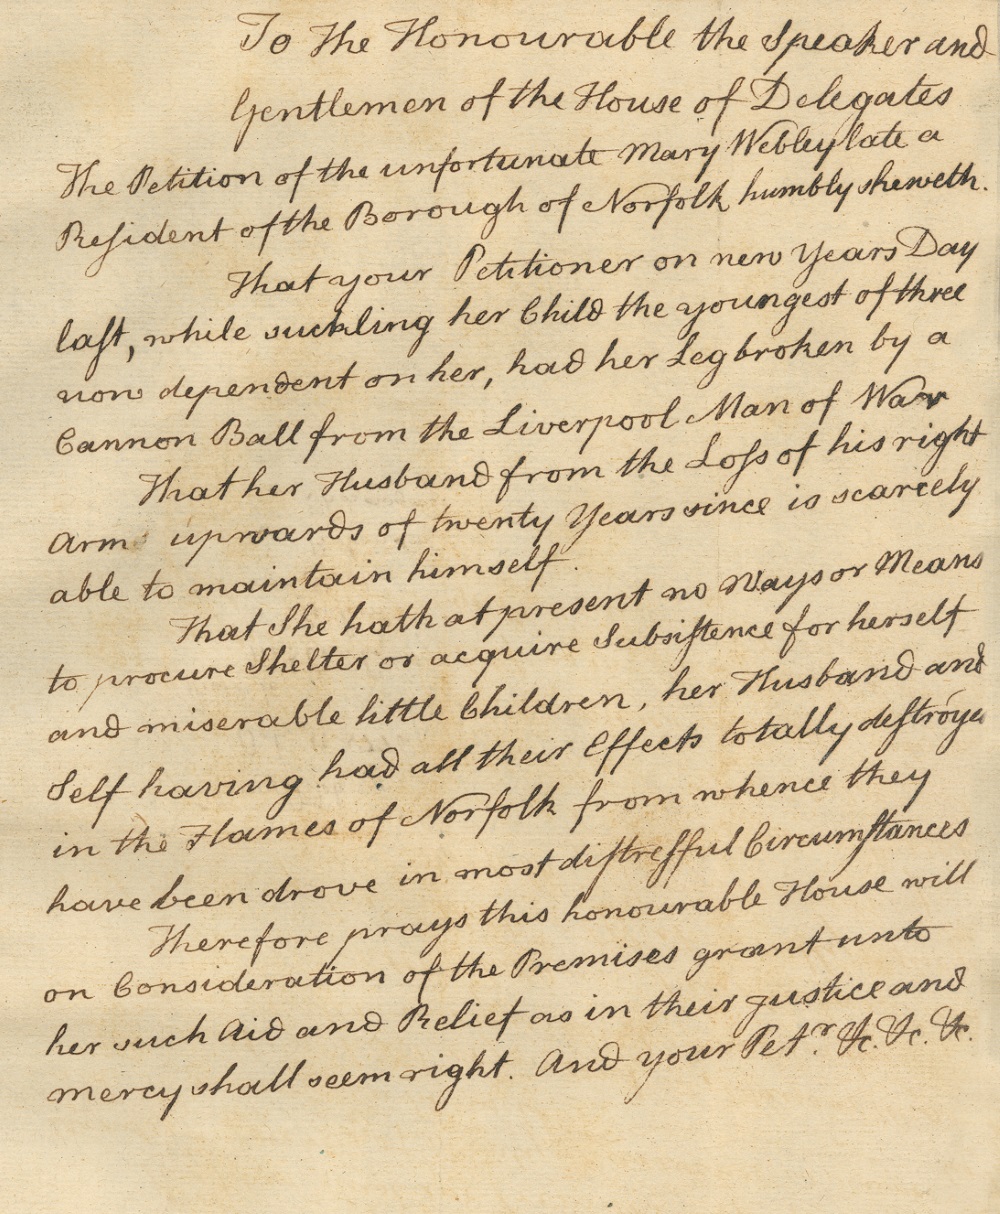 To The Honourable the Speaker and
Gentlemen of the House of Delegates
The Petition of the unfortunate Mary Webley late a
Resident of the Borough of Norfolk humbly sheweth.
That your Petitioner on new Years Day
last, while suckling her Child the youngest of three
now dependent on her, had her Leg broken by a
Cannon Ball from the Liverpool Man of War
That her Husband from the Loss of his right
Arm upwards of twenty Years since is scarcely
able to maintain himself.
That She hath at present no Ways or Means
to procure Shelter or acquire Subsistence for herself
and miserable little Children, her Husband and
Self having had all their Effects totally destroye
in the Flames of Norfolk from whence they
have been drove in most distressful Circumstances
Therefore prays this honourable House will
on Consideration of the Premises grant unto
her such Aid and Relief as in their justice and
mercy shall seem right. And your Petr. &c. &c. &c.